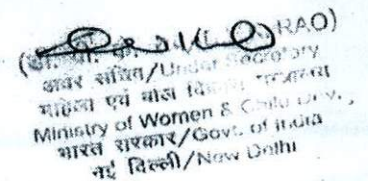 RAO)
अवर सचिव/Under Secretary
महिला एवं बाल विकास
Ministry of Women & Child Dev.,
भारत सरकार/Govt. of India
नई दिल्ली/New Delhi